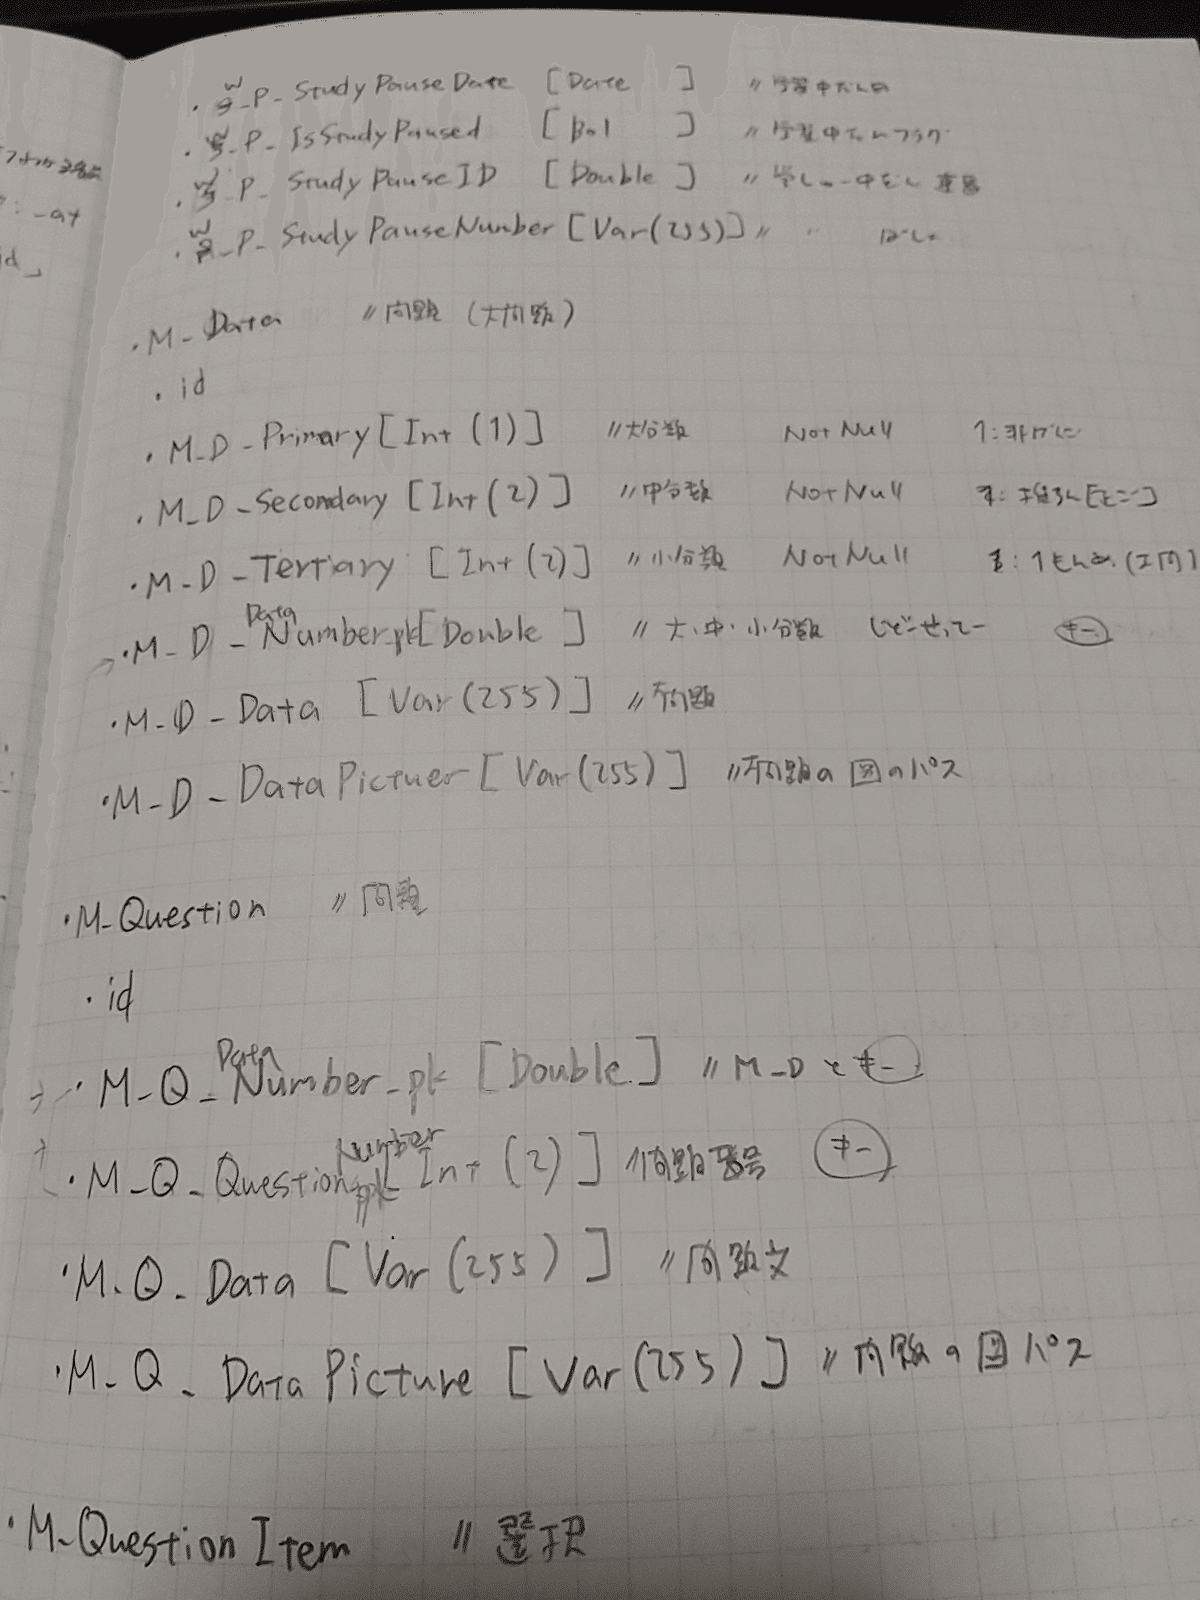 ・W_P_StudyPauseDate [Date ] //学習中だん日
・W_P_IsStudyPaused [Bol ] //学習中だんフラグ
・W_P_StudyPauseID [Double ] //
・W_P_StudyPauseNumber [Var(255)] // 〃
: _at
id」
・M_Data //問題 (大問題)
・id
・M_D_Primary [Int (1)] //大分類 Not Null 1:
・M_D_Secondary [Int (2)] //中分類 Not Null
・M_D_Tertiary [Int (2)] //小分類 Not Null
・M_D_DataNumber_pk[Double ] //大・中・小分類 キー
・M_D_Data [Var(255)] //大問題
・M_D_DataPictuer [Var(255)] //大問題の図のパス
・M_Question //問題
・id
・M_Q_DataNumber_pk [Double] //M_Dとキー
・M_Q_QuestionNumber_pk [Int (2)] //問題番号 キー
・M_Q_Data [Var(255)] //問題文
・M_Q_DataPicture [Var(255)] //問題の図パス
・M_QuestionItem //選択